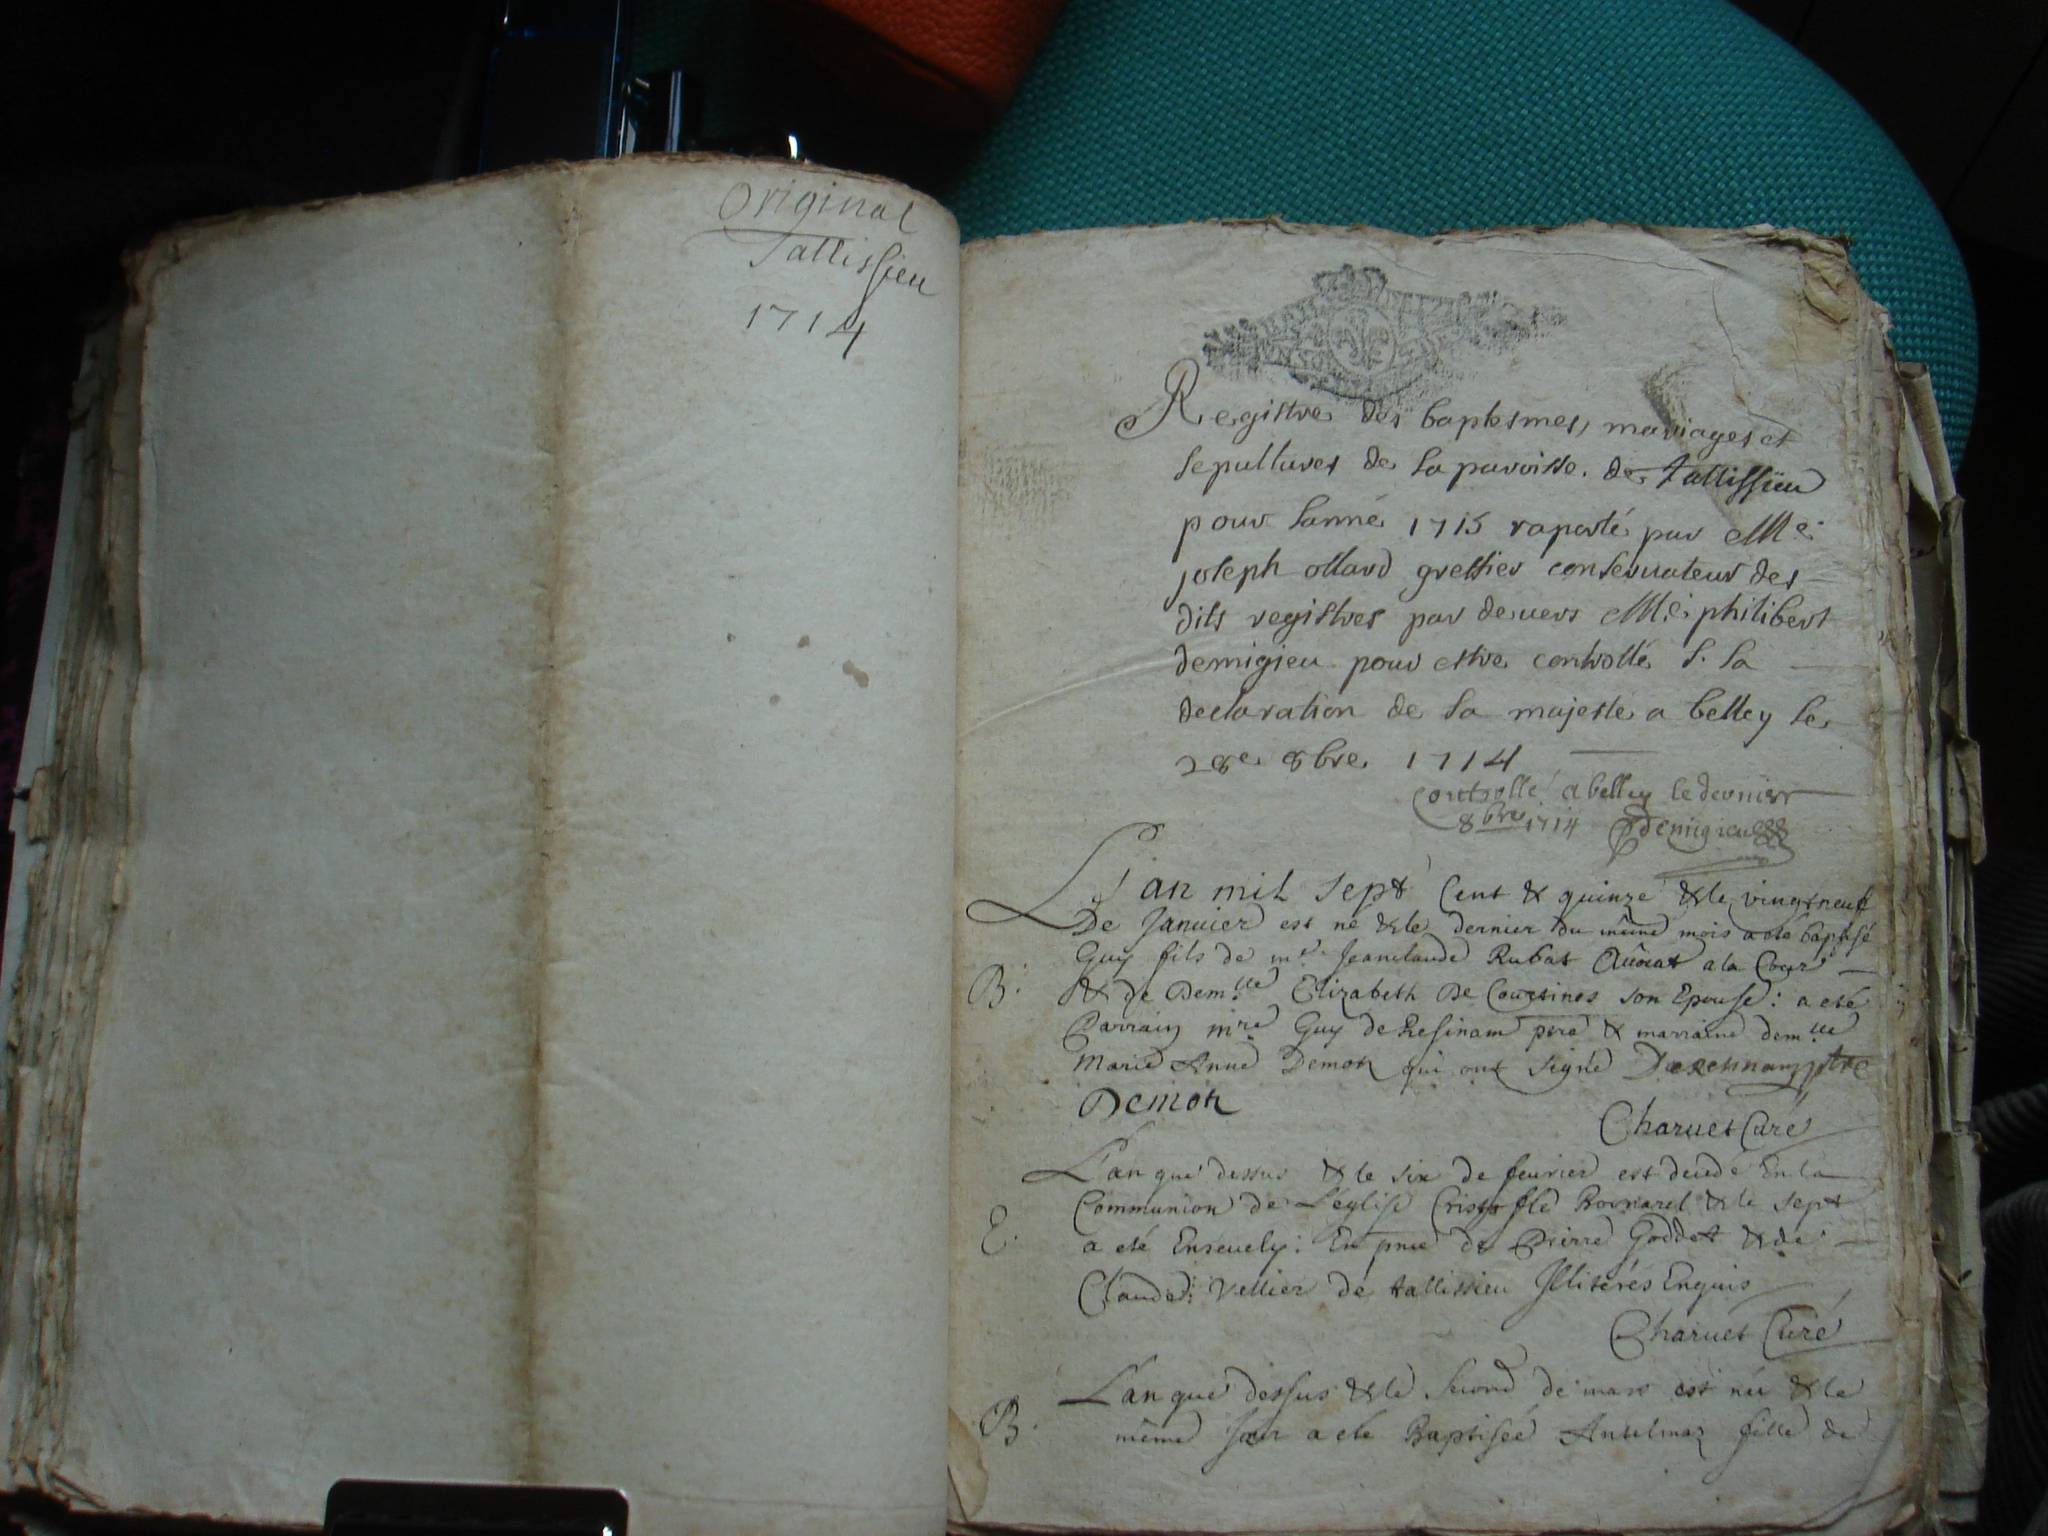 Original
Tallissieu
1714
Registre des baptesmes, mariages et
sepultures de la paroisse de tallissieu
pour lanné 1715 raporté par Me
joseph ollard greffier conservateur des
dits registres par devers Me philibert
demigieu pour estre controllé s. la
declaration de sa majesté a belley le
28e 8bre 1714
Controllé a belley le dernier
8bre 1714 Demigieu
L'an mil sept Cent & quinze & le vingt neuf
De Janvier est né & le dernier du même mois a eté baptisé
Guy fils de mr Jeanclaude Rubat Avocat a la Cour
B. & de Demlle Elizabeth De Coursines son Epouse: a eté
Parrain mre Guy de Resinam ptre & marraine demlle
Marie Anne Demon qui ont signé ptre
Demon
Charvet Curé
L'an que dessus & le six de fevrier est decedé En la
Communion de L'eglise Cristofle & le sept
E. a eté Ensevely: En pnce de Pierre Goddet & de
Claude Vellier de tallissieu Illiterés Enquis
Charvet Curé
L'an que dessus & le second de mars est née & le
B. même Jour a eté Baptisée Antelmaz fille de